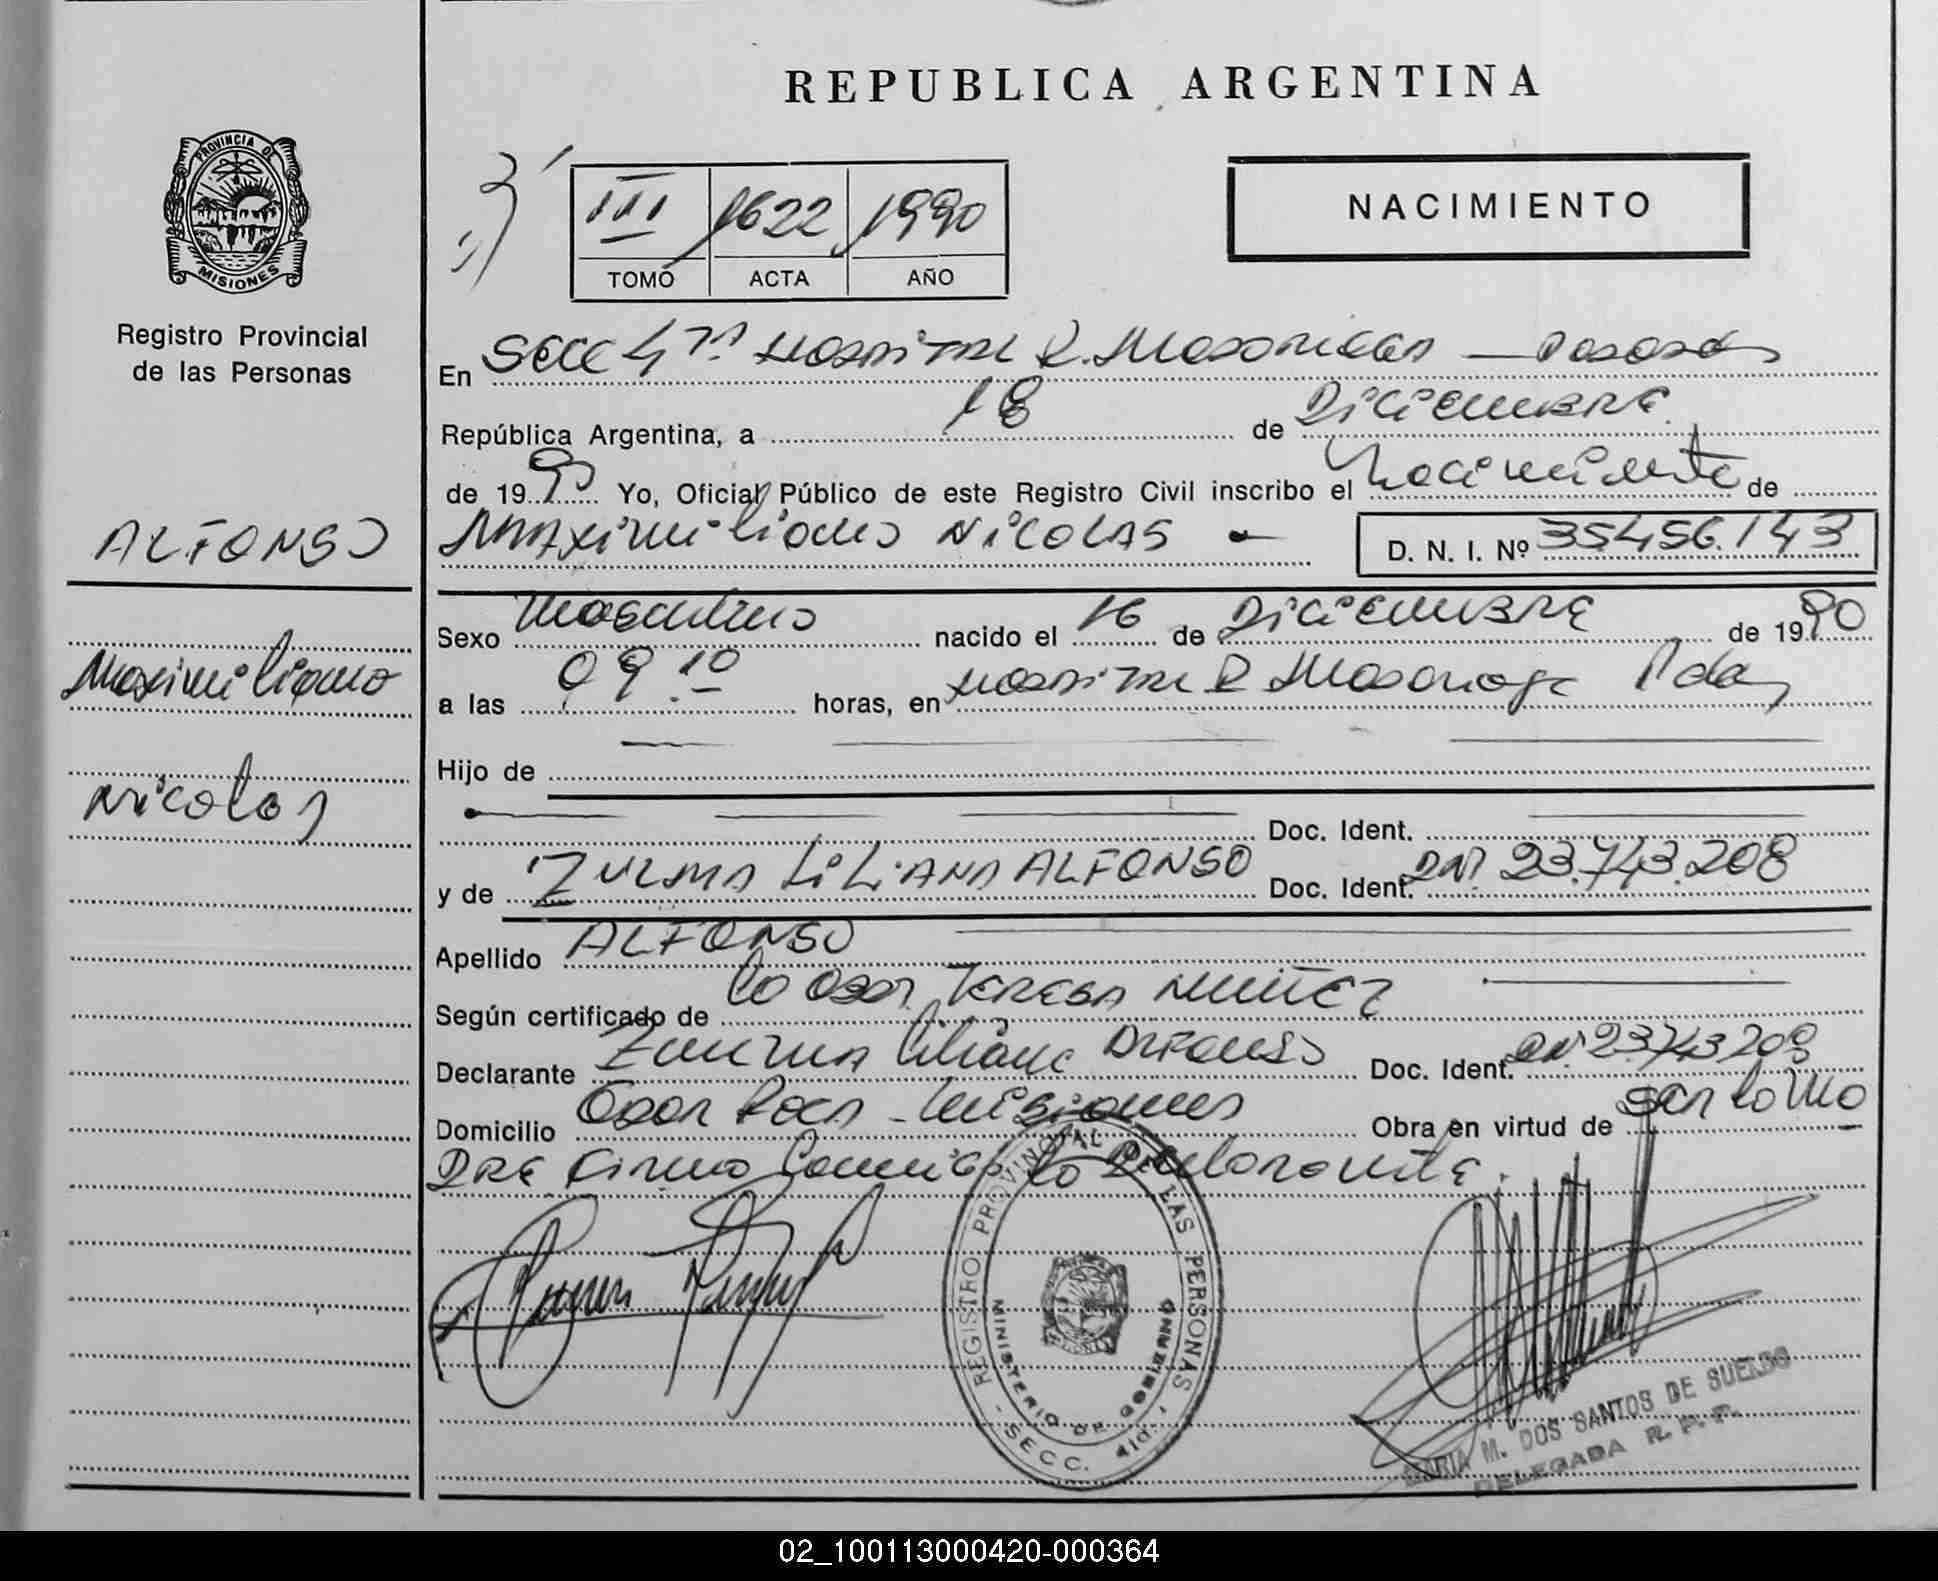 REPUBLICA ARGENTINA
PROVINCIA DE
MISIONES
Registro Provincial
de las Personas
III 1622 1990
TOMO ACTA AÑO
NACIMIENTO
En Secc 4ta Hospital R. Madariaga — Posadas
República Argentina, a 18 de Diciembre
de 1990 Yo, Oficial Público de este Registro Civil inscribo el Nacimiento de
ALFONSO
Maximiliano NICOLAS D. N. I. Nº 35456.143
Sexo Masculino nacido el 16 de Diciembre de 1990
Maximiliano
a las 09.10 horas, en Hospital R Madariaga Pdas
Hijo de
Nicolas
Doc. Ident.
y de ZULMA LILIANA ALFONSO Doc. Ident. DNI 23.743.208
Apellido ALFONSO
Según certificado de la Obst. TERESA NUÑEZ
Declarante Zulma Liliana Alfonso Doc. Ident. DNI 23743208
Domicilio Misiones Obra en virtud de ser la Ma
dre Firma Conmigo la Declarante.
REGISTRO PROVINCIAL DE LAS PERSONAS
MINISTERIO DE GOBIERNO
- SECC. 4ta. -
MARIA M. DOS SANTOS DE SUELDO
DELEGADA R. P. P.
02_100113000420-000364